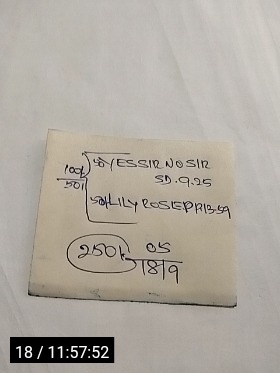 100/ 50/YESSIR NO SIR
501 SD.9.25
50/LILY ROSE PR13.59
2501- 05
1819
18 / 11:57:52